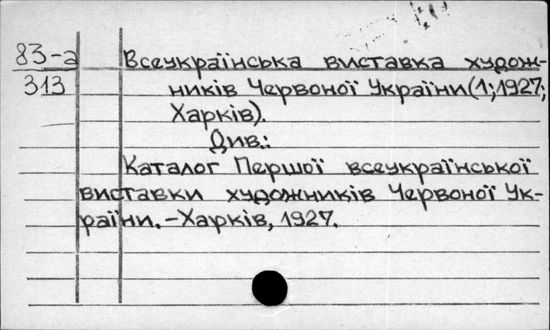 83-а Всеукраїнська виставка худож-
313 ників Червоної України (1; 1927;
Харків).
Див.:
Каталог Першої всеукраїнської
виставки художників Червоної Ук-
раїни. – Харків, 1927.